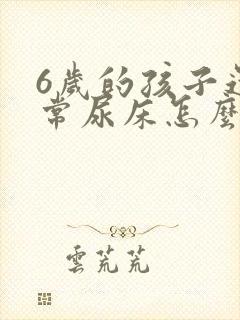 6歲的孩子
常尿床怎麼
雲芃芃